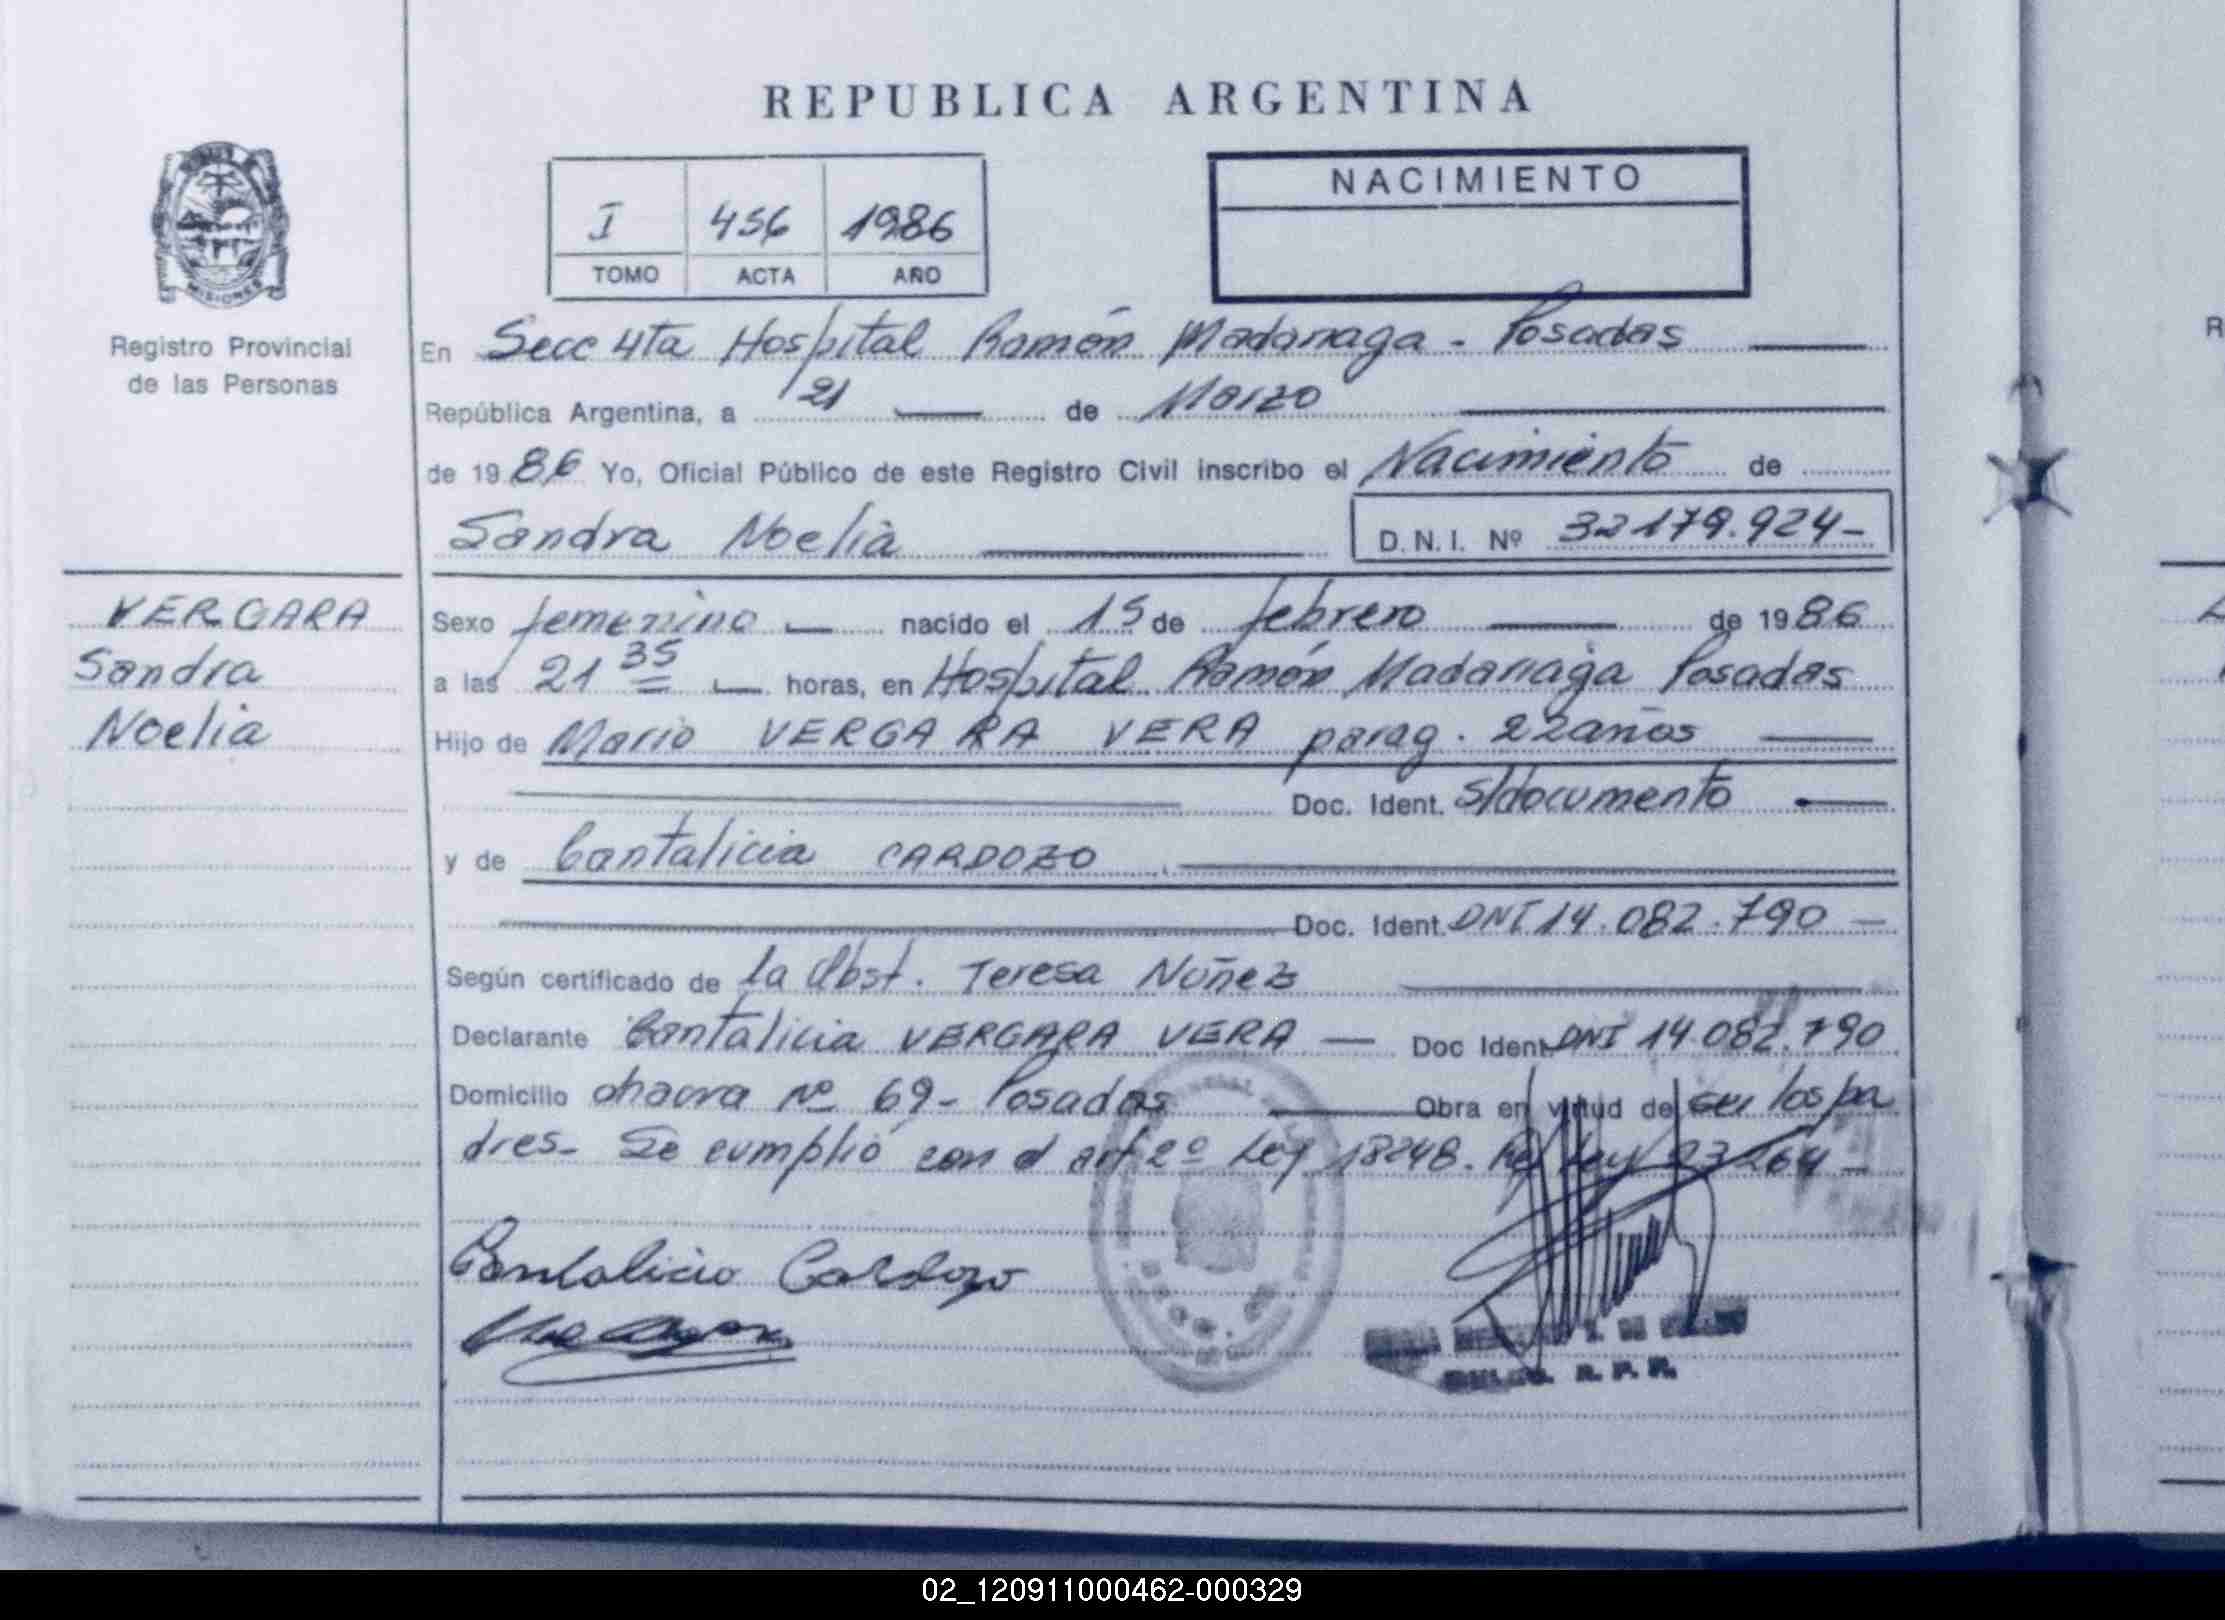 REPUBLICA ARGENTINA
MISIONES
Registro Provincial
de las Personas
I 456 1986
TOMO ACTA AÑO
NACIMIENTO
En Secc 4ta Hospital Ramón Madariaga - Posadas
República Argentina, a 21 de Marzo
de 1986 Yo, Oficial Público de este Registro Civil inscribo el Nacimiento de
Sandra Noelia D.N.I. Nº 32179.924-
VERGARA
Sandra
Noelia
Sexo femenino nacido el 15 de febrero de 1986
a las 21 35 horas, en Hospital Ramón Madariaga Posadas
Hijo de Mario VERGARA VERA parag. 22 años
Doc. Ident. s/documento
y de Cantalicia CARDOZO
Doc. Ident. DNI 14.082.790 -
Según certificado de la Obst. Teresa Nuñez
Declarante Cantalicia VERGARA VERA - Doc Ident DNI 14.082.790
Domicilio chacra Nº 69- Posadas Obra en virtud de los pa
dres- Se cumplió con el art 2º Ley 18248. Ley 23264 -
Cantalicia Cardozo
R. P. P.
02_120911000462-000329